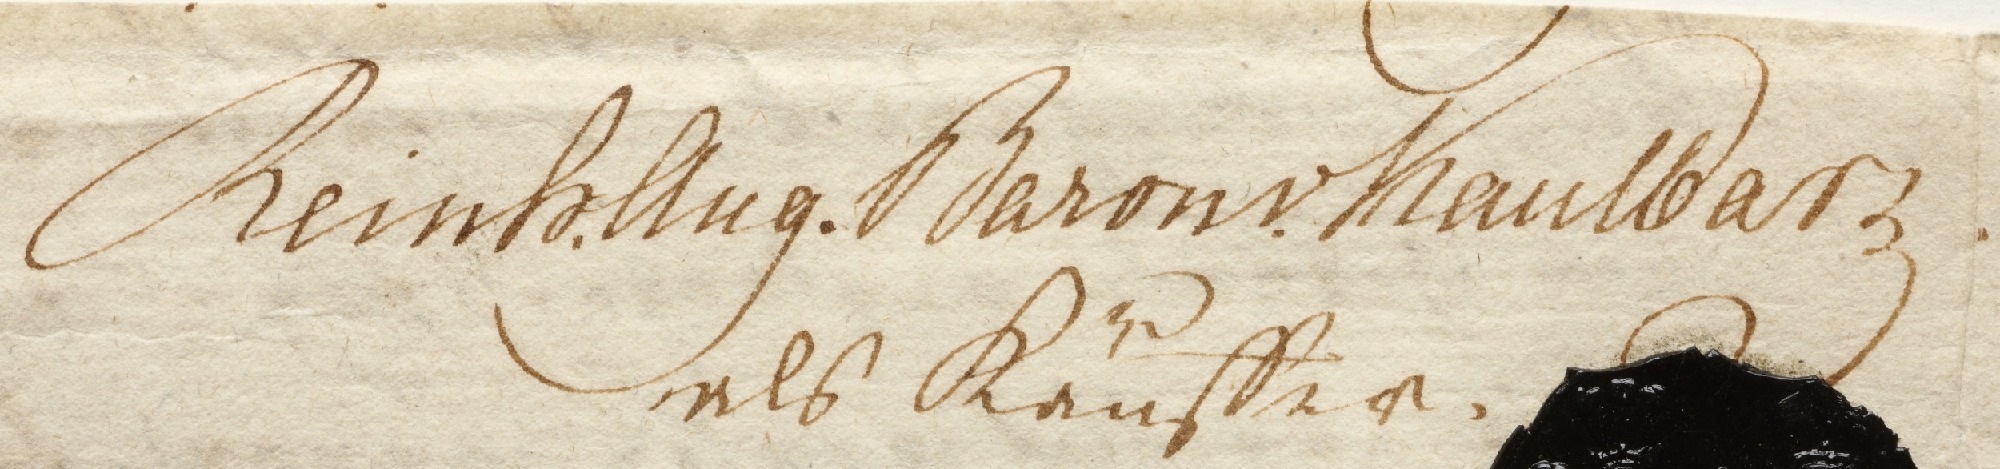 Reinh. Aug. Baron v. Kaulbarz.
als Käuffer.